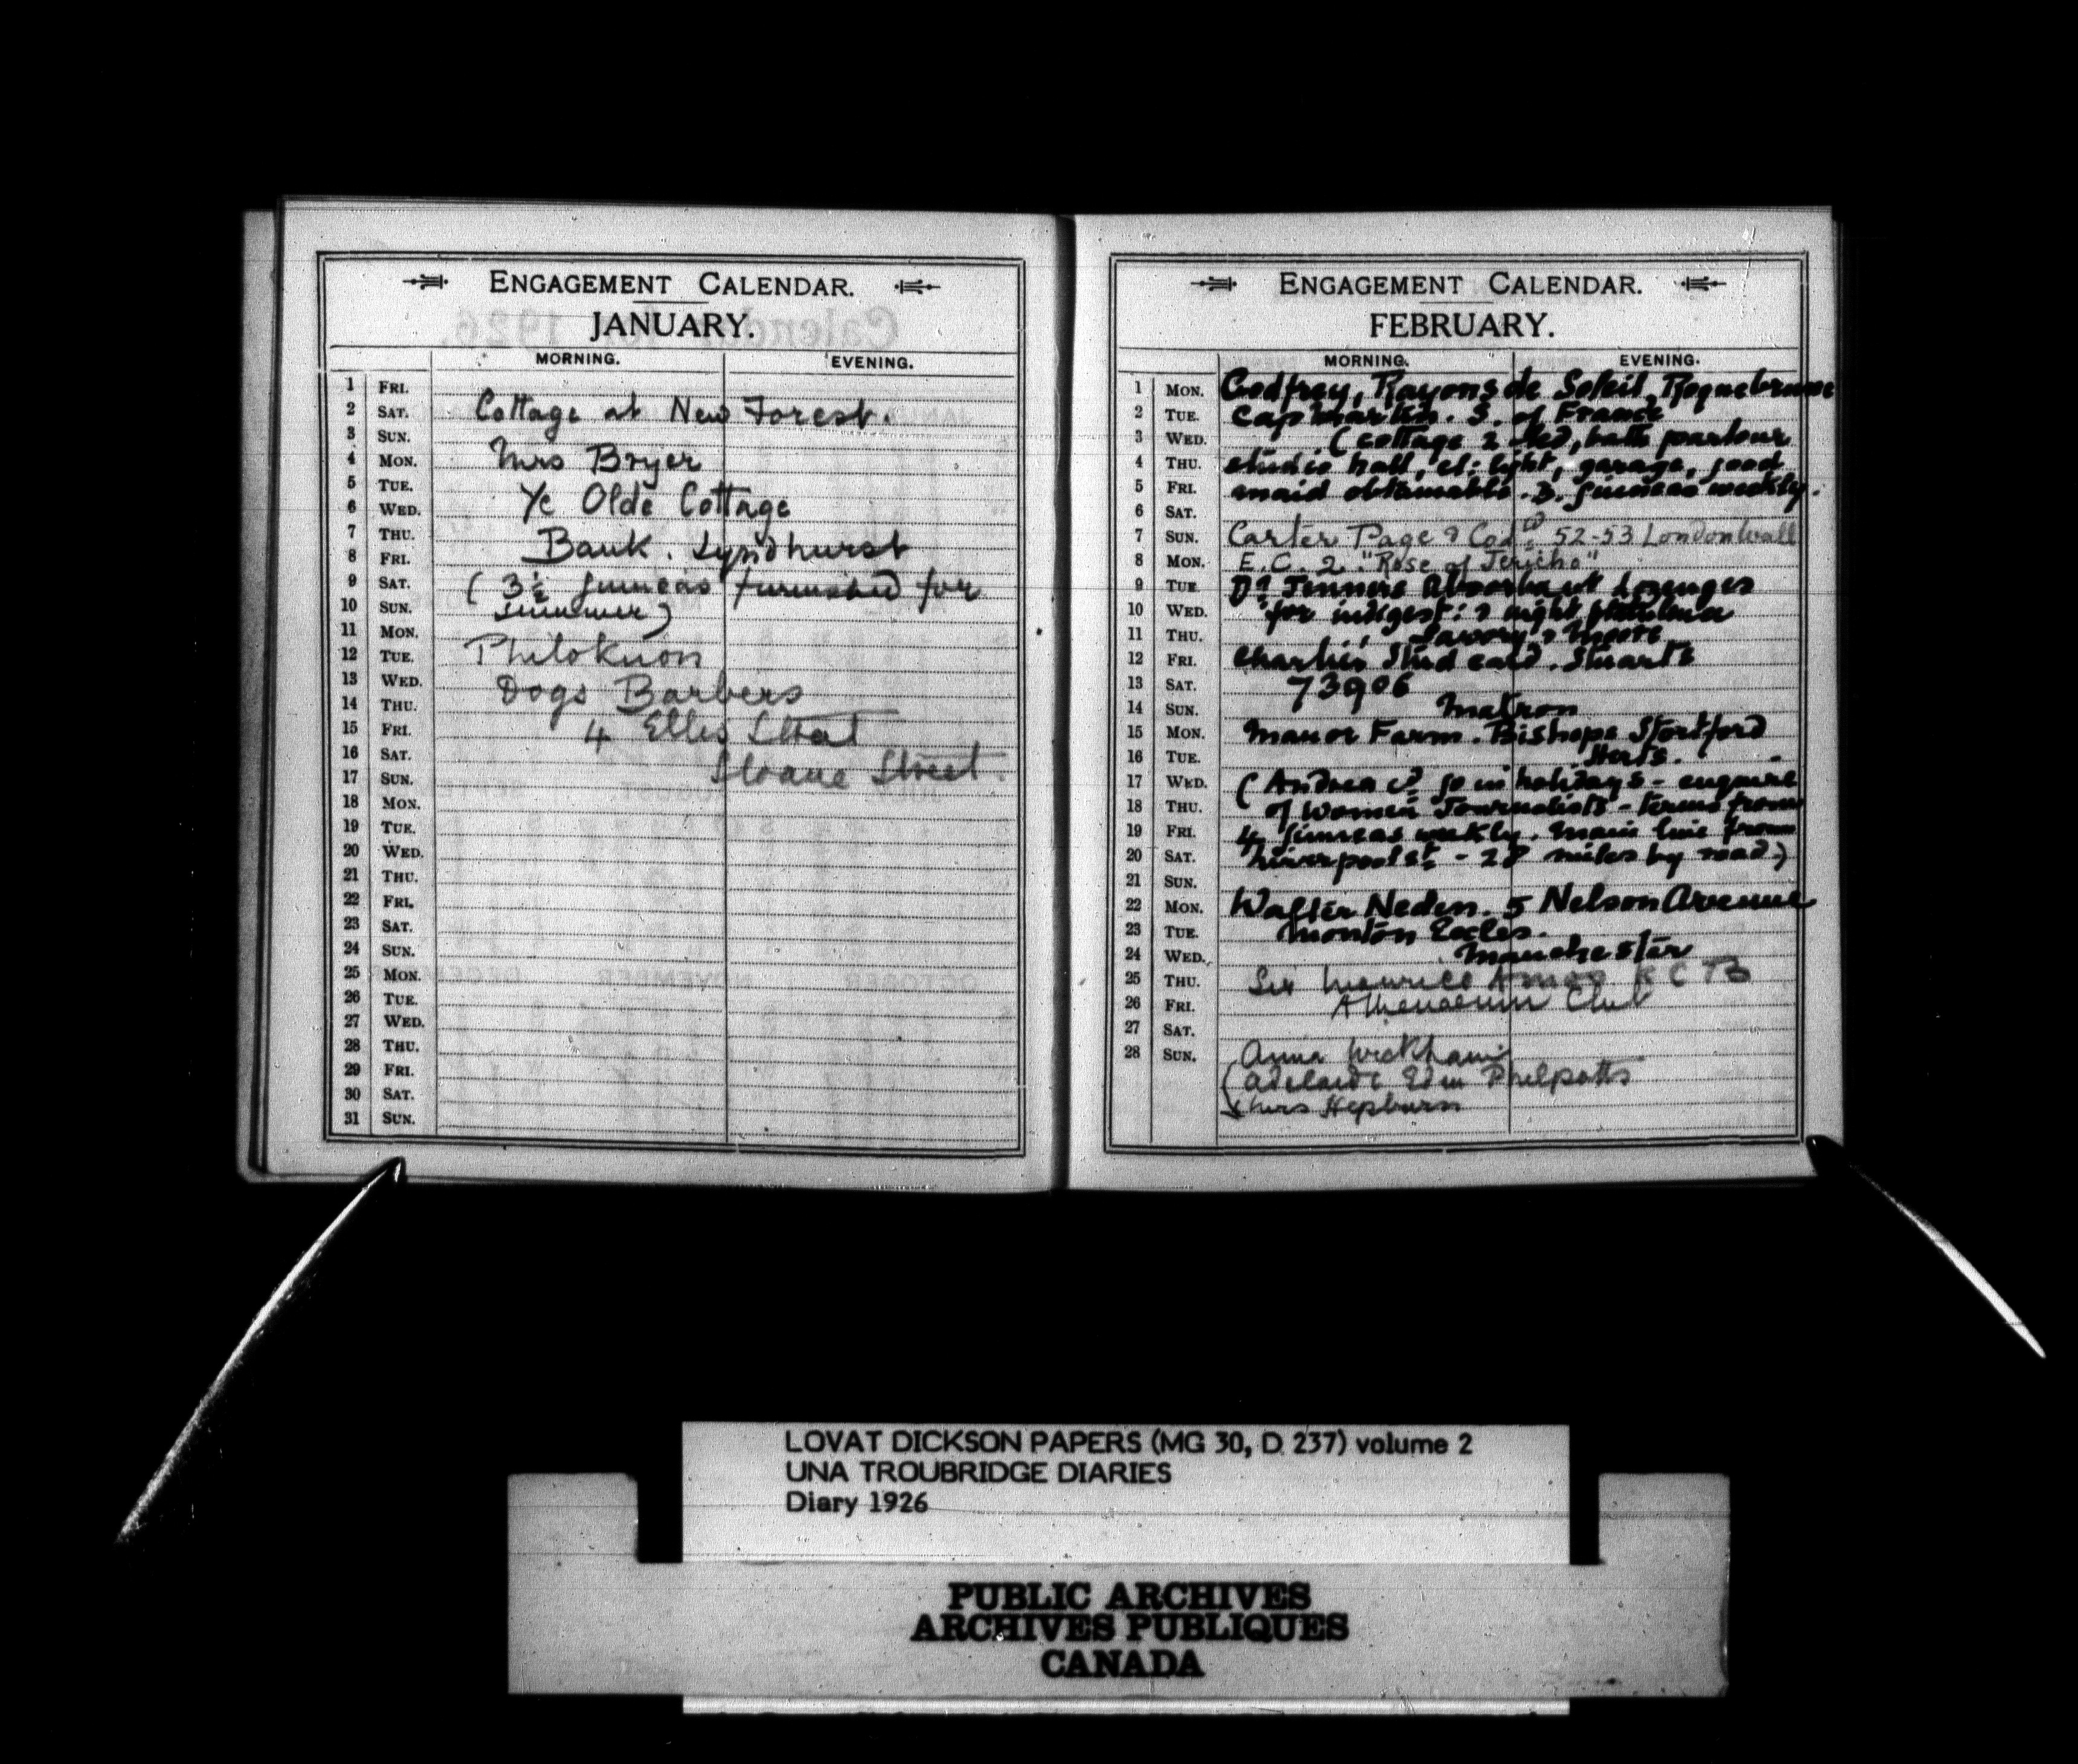 ENGAGEMENT CALENDAR.
JANUARY.
MORNING. EVENING.
1 FRI.
2 SAT. Cottage at New Forest.
3 SUN.
4 MON. Mrs Bryer
5 TUE.
6 WED. Ye Olde Cottage
7 THU.
8 FRI. Bank. Lyndhurst
9 SAT. (3½ guineas furnished for
10 SUN. summer)
11 MON.
12 TUE. Philokuon
13 WED. Dogs Barbers
14 THU.
15 FRI. 4 Ellis Street
16 SAT.
17 SUN. Sloane Street.
18 MON.
19 TUE.
20 WED.
21 THU.
22 FRI.
23 SAT.
24 SUN.
25 MON.
26 TUE.
27 WED.
28 THU.
29 FRI.
30 SAT.
31 SUN.
ENGAGEMENT CALENDAR.
FEBRUARY.
MORNING. EVENING.
1 MON. Godfrey, Rayons de Soleil, Roquebrune
2 TUE. Cap Martin. S. of France
3 WED. (cottage 2 bed, bath parlour
4 THU. studio hall, el: light, garage, good
5 FRI. maid obtainable. 3. guineas weekly.
6 SAT.
7 SUN. Carter Page & Co 52-53 London Wall
8 MON. E.C. 2. "Rose of Jericho"
9 TUE. Dr Jenners Absorbent Lozenges
10 WED. for indigest: & night
11 THU. Savory & Moore
12 FRI. Charlie's Stud card. Stuarts
13 SAT. 73906
14 SUN. Matron
15 MON. Manor Farm. Bishops Stortford
16 TUE. Herts.
17 WED. (Andrea cd go in holidays - enquire
18 THU. of Women Journalists - terms from
19 FRI. 4 guineas weekly. Main line from
20 SAT. Liverpool St - 28 miles by road)
21 SUN.
22 MON. Walter Neden. 5 Nelson Avenue
23 TUE. Monton Eccles.
24 WED. Manchester
25 THU. Sir Maurice Amos K C B
26 FRI. Athenaeum Club
27 SAT.
28 SUN. Anna Wickham
(Adelaide Eden Philpotts
x Mrs Hepburn
LOVAT DICKSON PAPERS (MG 30, D 237) volume 2
UNA TROUBRIDGE DIARIES
Diary 1926
PUBLIC ARCHIVES
ARCHIVES PUBLIQUES
CANADA